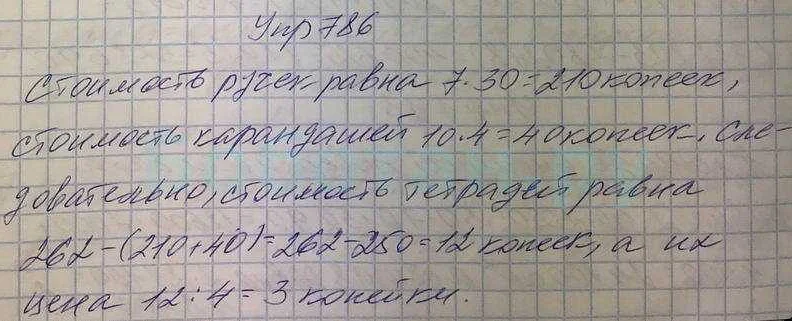 Упр 786
Стоимость ручек равна 7·30=210 копеек,
стоимость карандашей 10·4=40 копеек. Сле-
довательно, стоимость тетрадей равна
262-(210+40)=262-250=12 копеек, а их
цена 12:4=3 копейки.